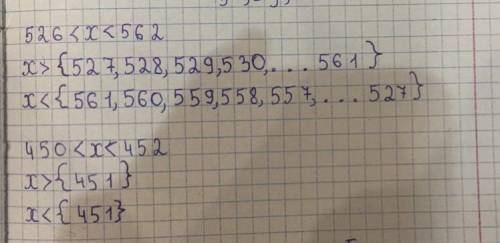 526 < x < 562
x > {527, 528, 529, 530, ... 561}
x < {561, 560, 559, 558, 557, ... 527}
450 < x < 452
x > {451}
x < {451}